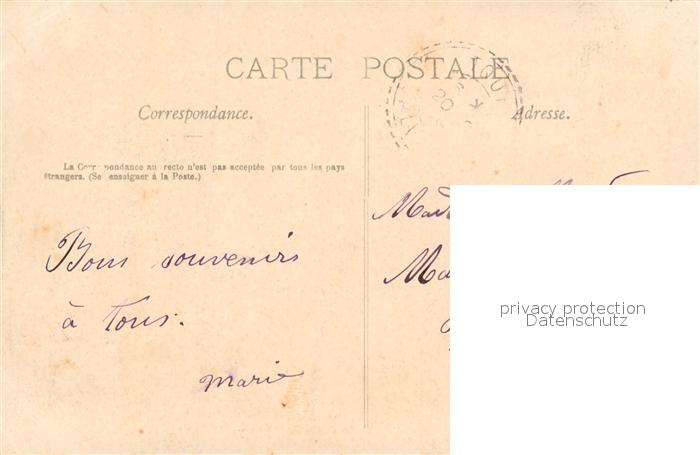 CARTE POSTALE
Correspondance.
Adresse.
La Cor pondance au recto n'est pas acceptée par tous les pays
étrangers. (Se enseigner à la Poste.)
Bons souvenirs
à Tous.
Marie
privacy protection
Datenschutz